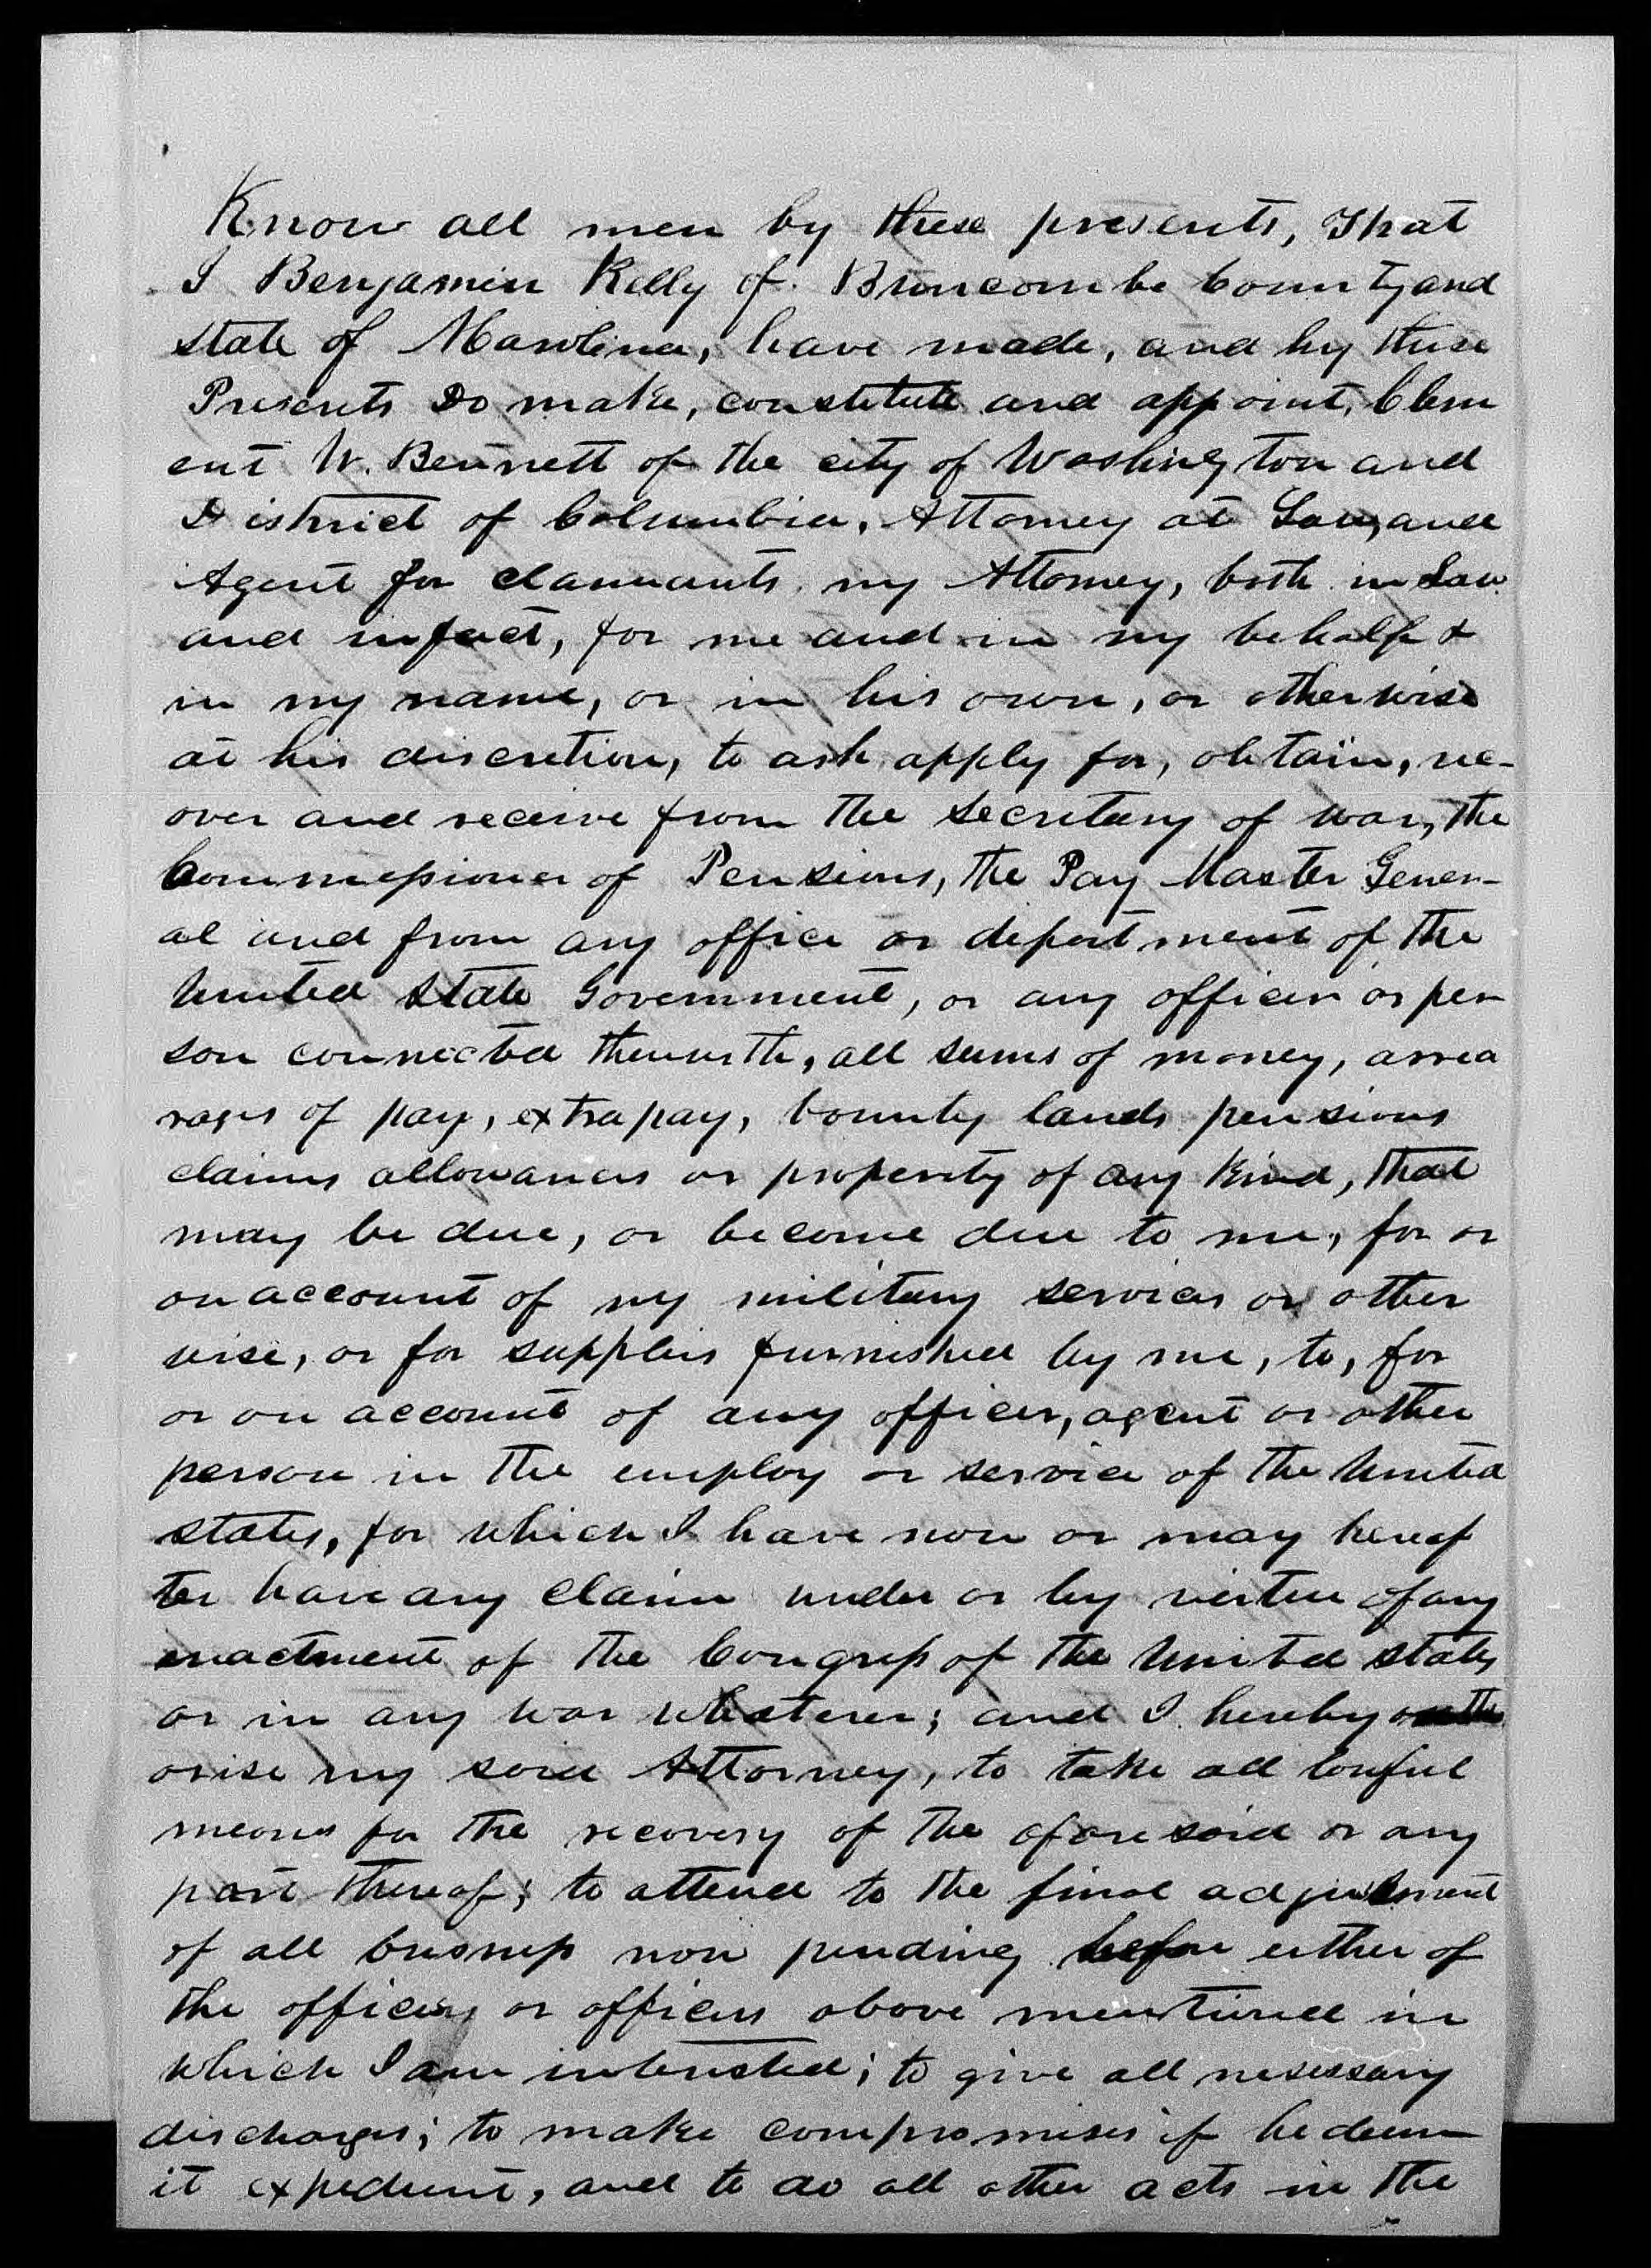 Know all men by these presents, That
I Benjamin Kelly of Buncombe County and
state of N Carolina, have made, and by these
Presents Do make, constitute and appoint, Clem
ent W. Bennett of the city of Washington and
District of Columbia, Attorney at Law, and
Agent for claimants my Attorney, both in Law
and in fact, for me and in my behalf &
in my name, or in his own, or otherwise
at his discretion, to ask apply for, obtain, rec-
over and receive from the Secretary of war, the
Commissioner of Pensions, the Pay Master Gener-
al and from any office or department of the
United State Government, or any officer or per
son connected therewith, all sums of money, arrea
rages of pay, extra pay, bounty lands pensions
claims allowances or property of any kind, that
may be due, or become due to me, for or
on account of my military services or other
wise, or for supplies furnished by me, to, for
or on account of any officer, agent or other
person in the employ or service of the United
states, for which I have now or may heraf
ter have any claim under or by virtue of any
enactment of the Congress of the United states
or in any war whatever; and I hereby auth
orise my said Attorney, to take all lawful
means for the recovery of the aforesaid or any
part thereof; to attend to the final adjustment
of all business now pending before either of
the officers or offices above mentioned in
which I am interested; to give all nesessary
discharges; to make compromises if he deem
it expedient, and to do all other acts in the